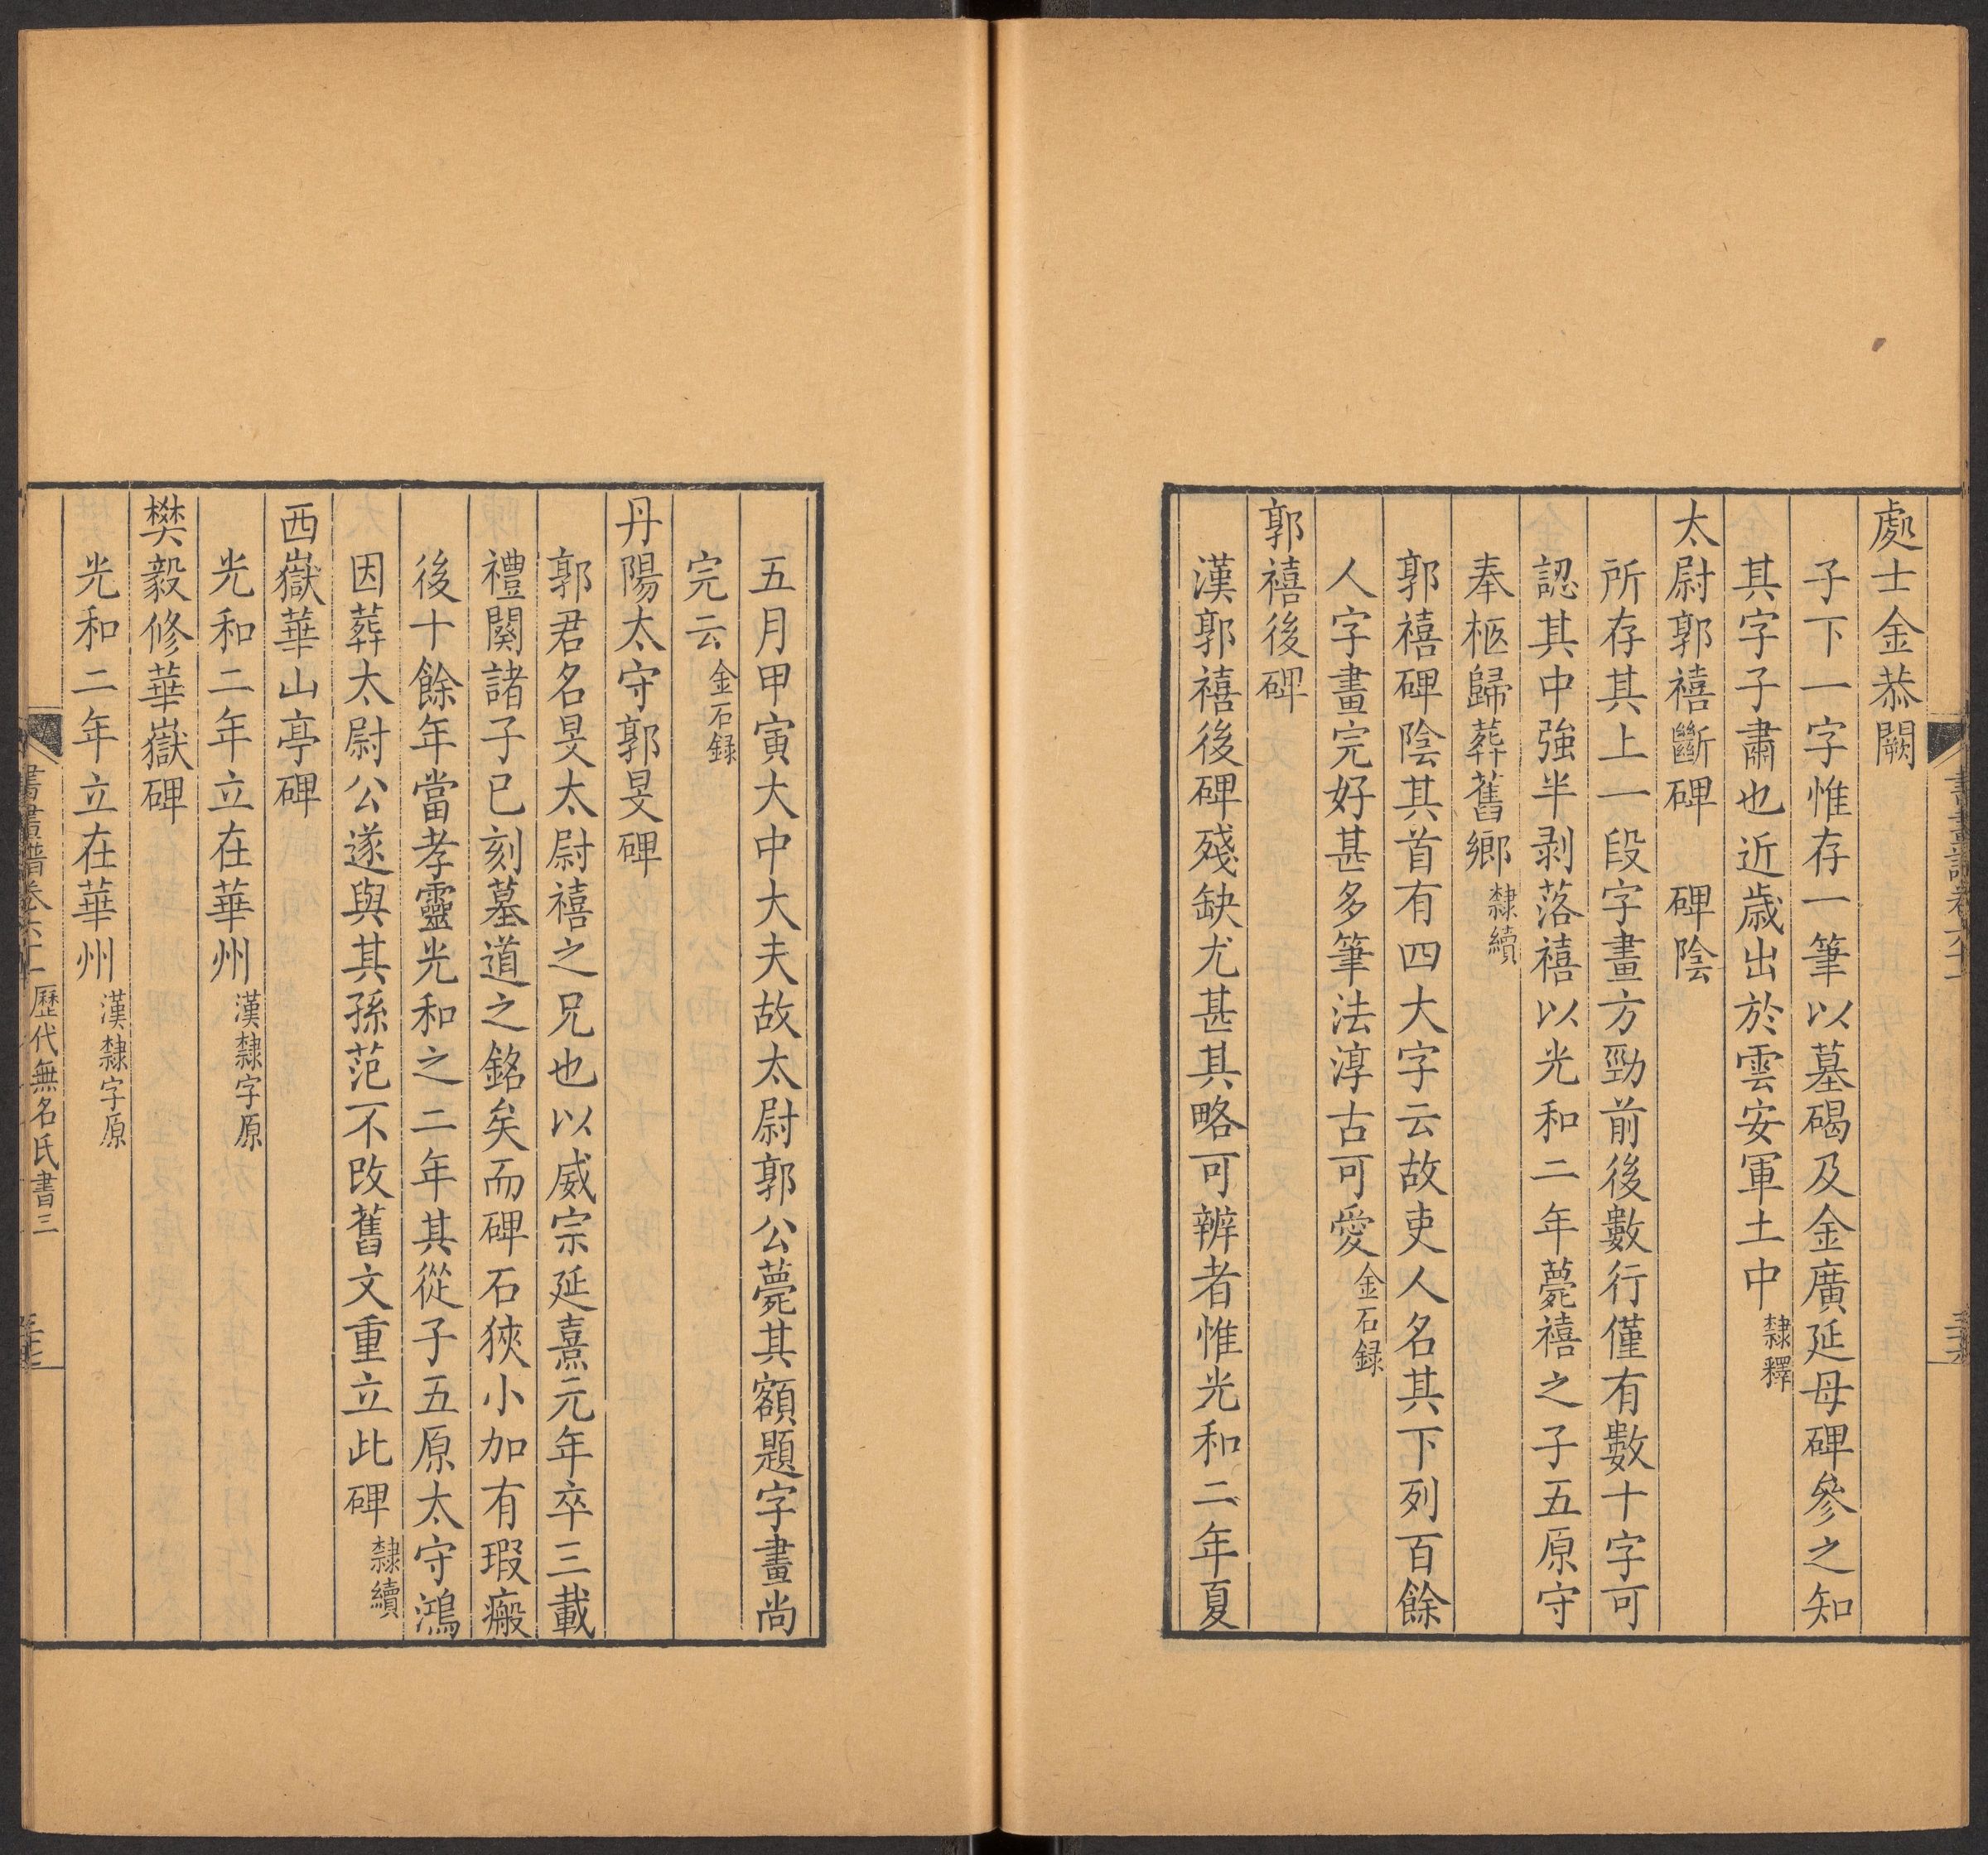 處士金恭闕
子下一字惟存一筆以墓碣及金廣延母碑參之知
其字子肅也近歲出於雲安軍土中隸釋
太尉郭禧斷碑　碑陰
所存其上一段字畫方勁前後數行僅有數十字可
認其中強半剥落禧以光和二年薨禧之子五原守
奉柩歸葬舊鄉隸續
郭禧碑陰其首有四大字云故吏人名其下列百餘
人字畫完好甚多筆法淳古可愛金石録
郭禧後碑
漢郭禧後碑殘缺尤甚其略可辨者惟光和二年夏
五月甲寅大中大夫故太尉郭公薨其額題字畫尚
完云金石録
丹陽太守郭旻碑
郭君名旻太尉禧之兄也以威宗延熹元年卒三載
禮闋諸子已刻墓道之銘矣而碑石狹小加有瑕瘢
後十餘年當孝靈光和之二年其從子五原太守鴻
因葬太尉公遂與其孫范不改舊文重立此碑隸續
西嶽華山亭碑
光和二年立在華州漢隸字原
樊毅修華嶽碑
光和二年立在華州漢隸字原
書畫譜卷六十一歷代無名氏書三